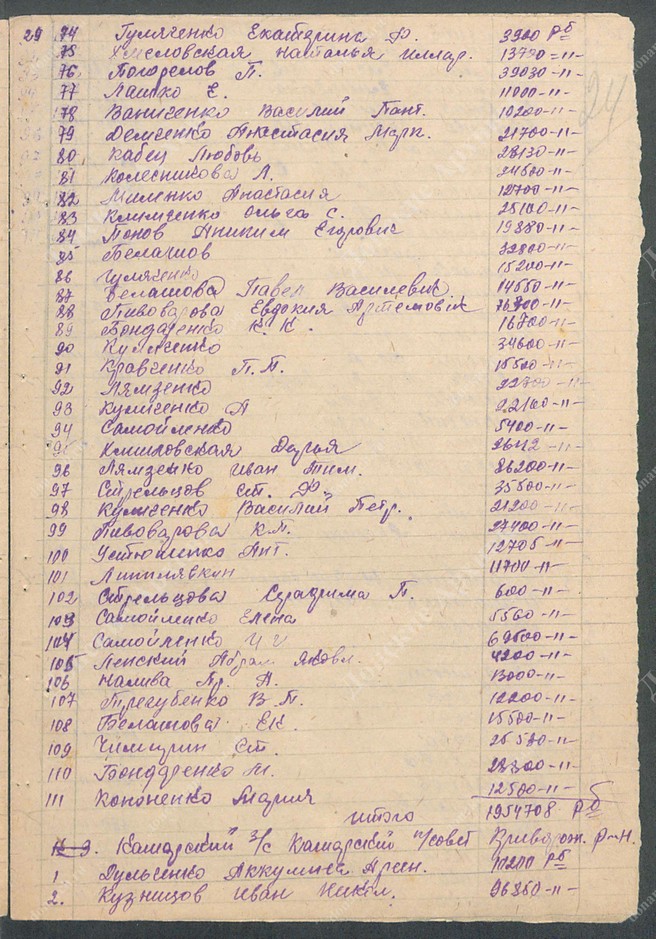 29 74 Гумяченко Екатерина Ф. 3900 рб
75 Хмсловская Наталья Иллар. 13790 -"-
76 Погорелов П. 39030 -"-
77 Лашко Е. 11000 -"-
78 Ваниченко Василий Пант. 10200 -"-
79 Демченко Анастасия Марк. 21700 -"-
80 Кабец Любовь 28130 -"-
81 Колесникова Л. 24500 -"-
82 Миленко Анастасия 12700 -"-
83 Климченко Ольга С. 25100 -"-
84 Попов Аниким Егорович 19880 -"-
85 Белашов 32800 -"-
86 Гумяченко 15200 -"-
87 Белашова Павел Василевич 14550 -"-
88 Пивоварова Евдокия Артемовік
89 Бондаренко К. К. 16700 -"-
90 Куличенко 34600 -"-
91 Кравченко П. П. 15500 -"-
92 Лямзенко
93 Куличенко А 22160 -"-
94 Самойленко 5400 -"-
95 Хмиловская Дарья
96 Лямзенко Иван Тим. 26200 -"-
97 Стрельцов Ст. Ф. 35500 -"-
98 Куличенко Василий Петр. 21200 -"-
99 Пивоварова К.М. 27400 -"-
100 Устюшенко Ант. 12705 -"-
101 11700 -"-
102 Стрельцова Сурафима П. 600 -"-
103 Самойленко Елена 5560 -"-
104 Самойленко 69500 -"-
105 Ленский Абрам Яковл. 4200 -"-
106 Налива Пр. А. 13000 -"-
107 Трегубенко В. П. 12200 -"-
108 Белашова Е.К. 15500 -"-
109 Чимирин Ст. 25580 -"-
110 Бондаренко М. 28300 -"-
111 Кононенко Мария 12500 -"-
итого 1954708 рб
9. Камарский з/с Камарский п/совет Криворож. р-н.
1. Дульсенко Аккулина Арсен. 11200 рб
2. Кузницов Иван Никол. 96850 -"-
24